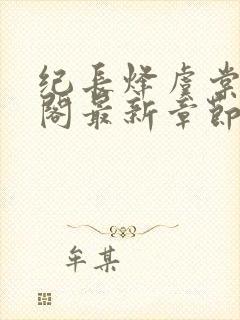 纪长烽虞棠
阁最新章节
牟某